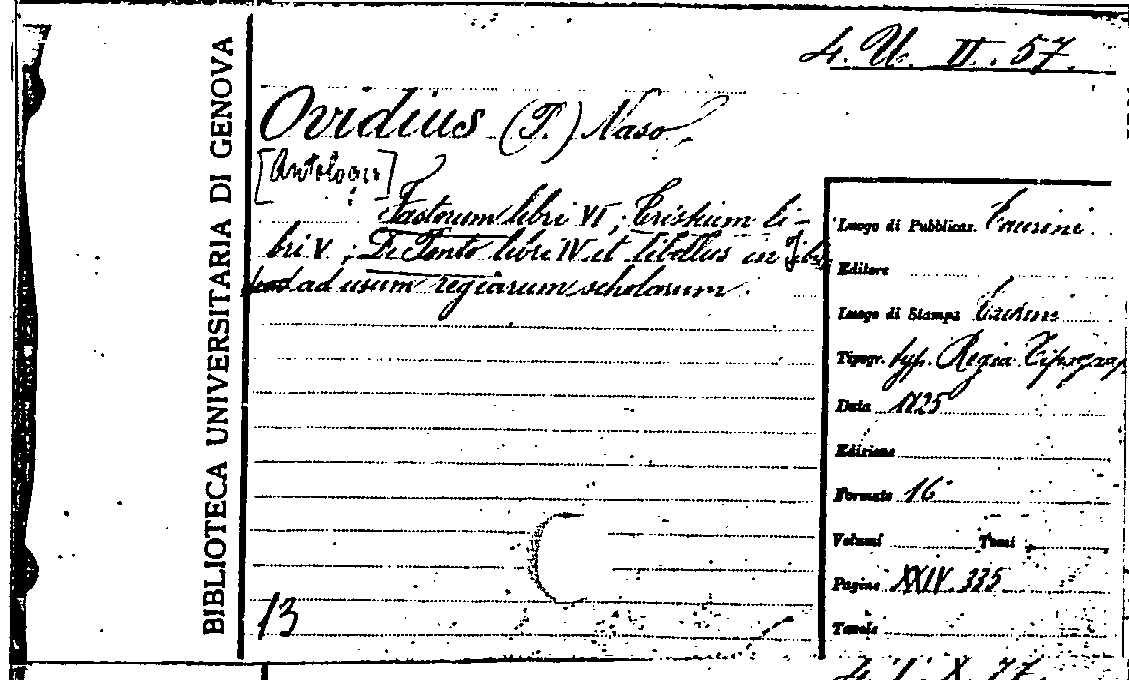 4. U. II. 57.
BIBLIOTECA UNIVERSITARIA DI GENOVA
Ovidius (P.) Naso.
[Antologie]
Fastorum libri VI; Tristium li-
bri V; De Ponto libri IV et libellus in
ad usum regiarum scholarum.
13
Luogo di Pubblicaz. Taurini.
Editore
Luogo di Stampa Taurini
Tipogr. typ. Regia Tipograf
Data 1725
Edizione
Formato 16
Volumi Tomi
Pagine XXIV. 335
Tavole
4. X. 77.